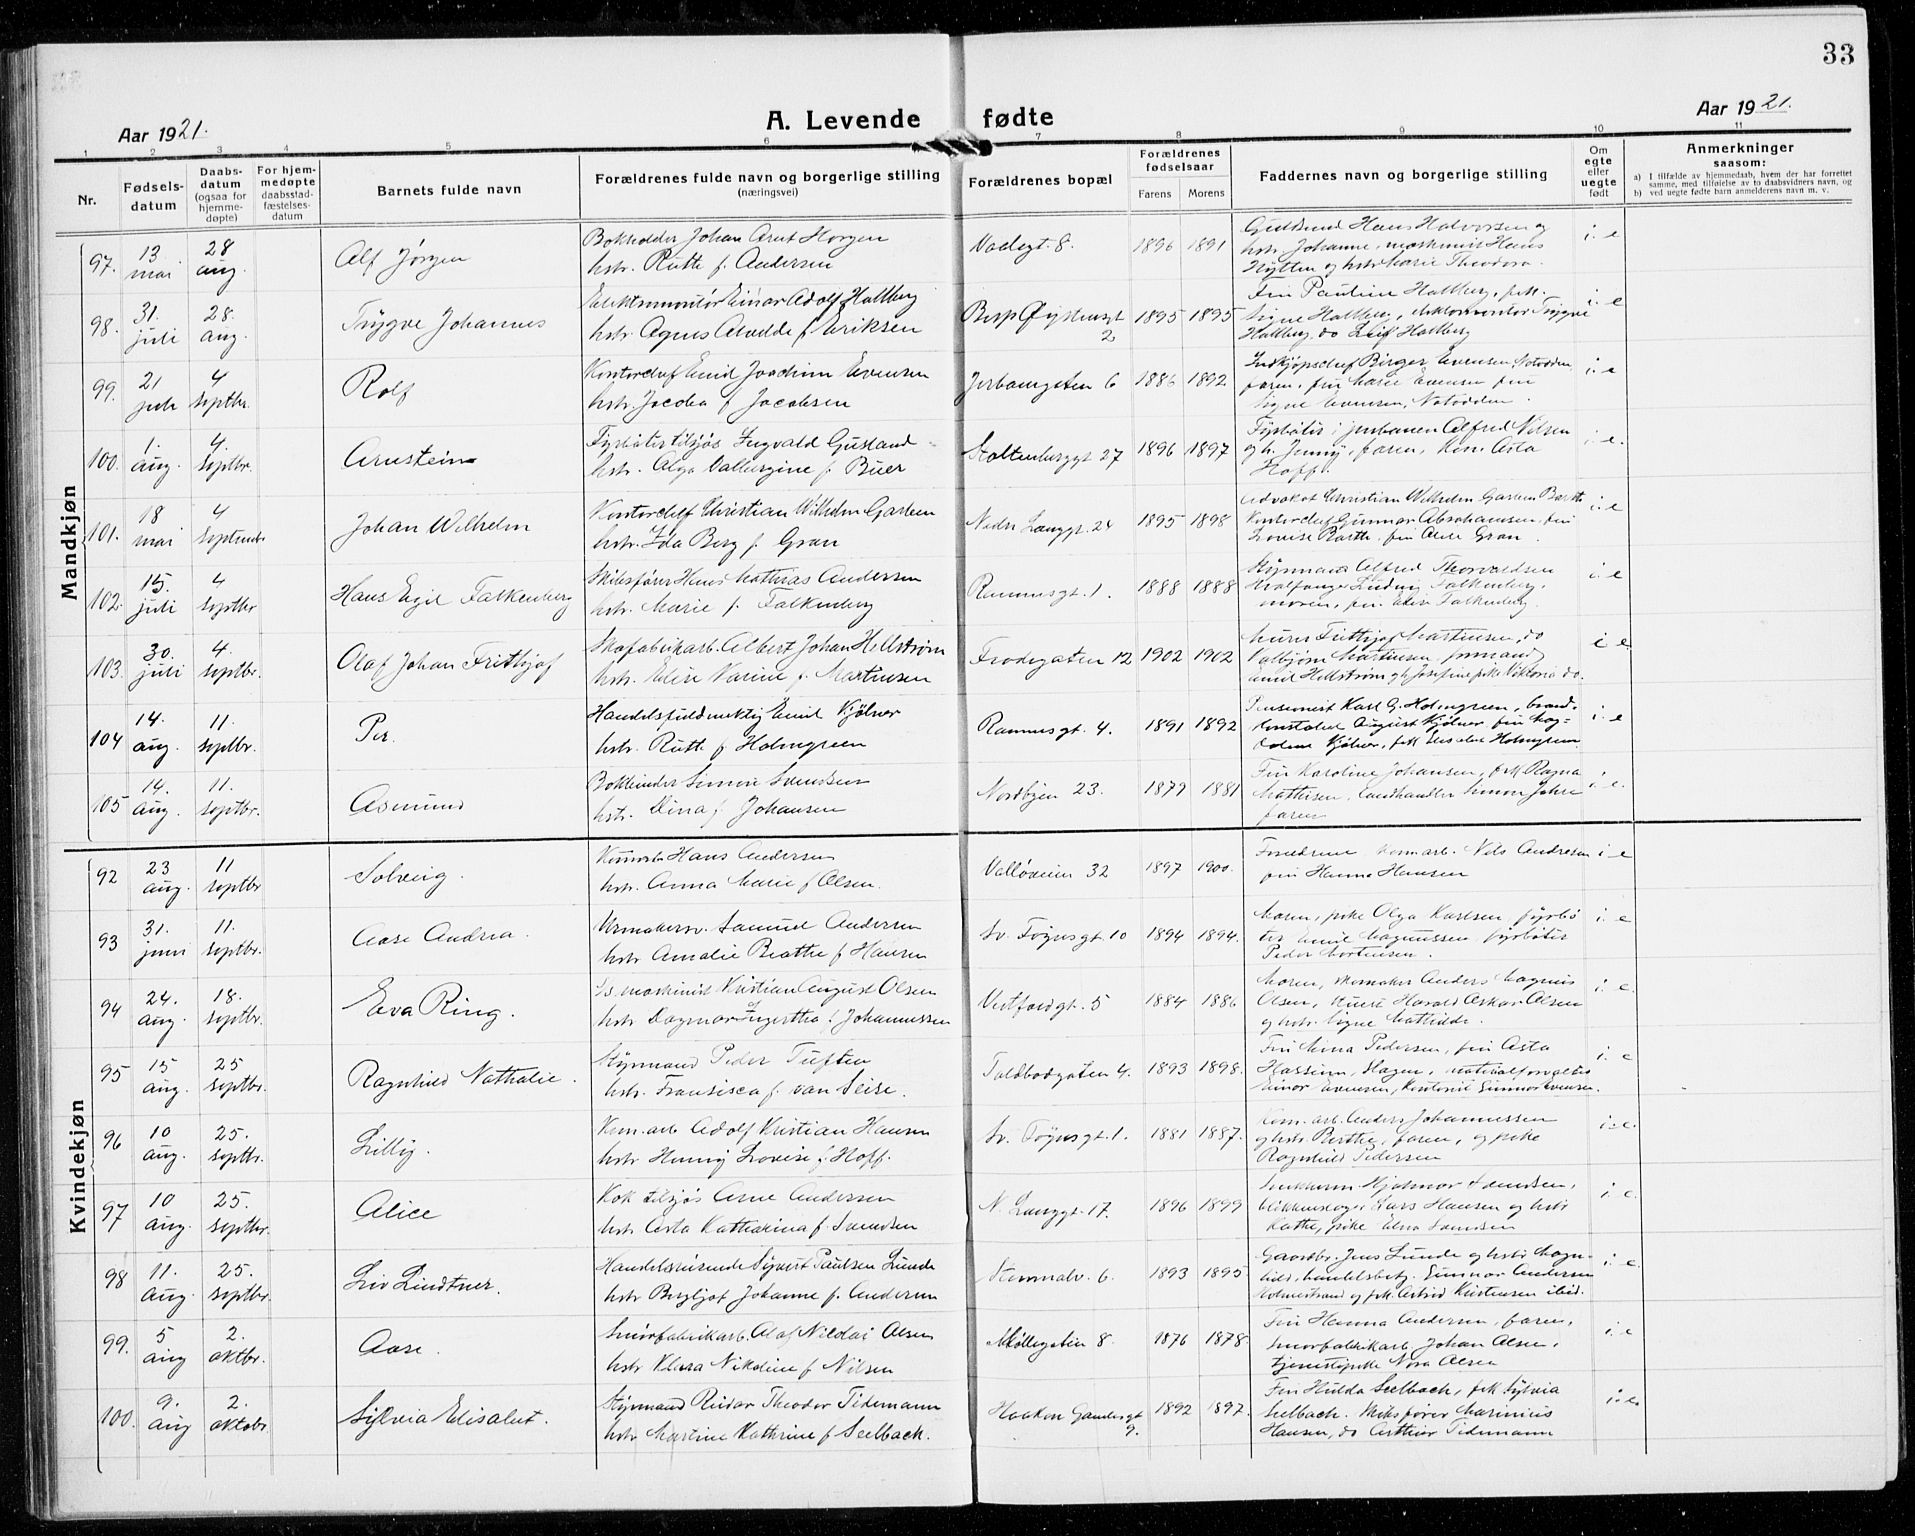 33
Aar 1921.
A. Levende fødte
Aar 1921.
1 2 3 4 5 6 7 8 9 10 11
Nr.
Fødsels-
datum
Daabs-
datum
(ogsaa for
hjemme-
døpte)
For hjem-
medøpte
daabsstad-
fæstelses-
datum
Barnets fulde navn
Forældrenes fulde navn og borgerlige stilling
(næringsvei)
Forældrenes bopæl
Forældrenes
fødselsaar
Farens Morens
Faddernes navn og borgerlige stilling
Om
egte
eller
uegte
født
Anmerkninger
saasom:
a) I tilfælde av hjemmedaab, hvem der har forrettet
samme, med tilføielse av to daabsvidners navn, og
b) ved uegte fødte barn anmelderens navn m. v.
Mandkjøn
97. 13 mai 28 aug. Alf Jørgen
Bokholder Johan Arnt Horgen
hstr. Ruth f. Andersen
8. 1896 1891
Guldsmed Hans Halvorsen og
hstr. Johanne, maskinist Hans
Hytten og hstr Marie Theodora.
i. e
98. 31. juli 28. aug. Trygve Johannes
Elektromontør Einar Adolf Hallberg
hstr. Agnes Alvilde f. Eriksen
Bisp Øysteinsgt 2 1895 1895
Frk. Pauline Hallberg, frk.
Signe Hallberg, elektromontør Trygve
Hallberg, do Leif Hallberg
i. e
99. 21 juli 4 septbr. Rolf
Kontorchef Emil Joachim Evensen
hstr. Jacoba f. Jacobsen
Jernbanegaten 6 1886 1892
Indkjøpschef Birger Evensen, Notodden,
faren, fru Marie Evensen, fru
Signe Evensen, Notodden.
i. e
100. 1. aug. 4. septbr. Arnstein
Fyrbøter tilsjøs Ingvald Gusland
hstr. Olga Valborgine f. Buer
Stoltenberggt 27 1896 1897
Fyrbøter i jernbanen Alfred Nilsen
og h. Jenny, faren, Asta
Hoff.
i. e.
101. 18 mai 4 septembr Johan Wilhelm
Kontorchef Christian Wilhelm Garben
hstr. Ida Berg f. Gran
Nedre Langgt. 24 1895 1898
Advokat Christian Wilhelm Garben Barth
Kontorchef Gunnar Abrahamsen, fru
Louise Barth, fru Gran.
i. e
102. 15. juli 4 septbr Hans Egil Falkenberg
Skibsfører Hans Mathias Andersen
hstr. Marie f. Falkenberg
Ramnesgt. 1. 1888 1888
Styrmand Alfred Thorvaldsen
Hvalfanger Ludvig Falkenberg,
moren, frk. Falkenberg.
i. e
103. 30. juli 4. septbr. Olaf Johan Frithjof
Skofabrikarb. Albert Johan Hellstrøm
hstr. Elise Karine f. Martinsen
Frodegaten 12 1902 1902
Murer Frithjof Martinsen, do
Valbjørn Martinsen, formand
Emil Hellstrøm og h. Josefine, pike Viktoria do.
i e
104 14. aug. 11. septbr. Per.
Handelsfuldmektig Emil Kjølner
hstr. Ruth f. Holmgreen
Ramnesgt. 4. 1891 1892
Pensionist Karl G. Holmgreen, brand-
konstabel August Kjølner, fru Mag-
dalene Kjølner, frk Holmgreen.
i. e
105 14. aug. 11. septbr. Asmund
Bokbinder Simon Svendsen
hstr. Dina f. Johansen
Nordbyen 23. 1879 1881
Fru Karoline Johansen, frk Ragna
Mathisen, landhandler Simon Jahre
faren
i. e.
Kvindekjøn
92 23 aug. 11 septbr Solveig.
Komarb Hans Andersen
hstr. Anna Marie f. Olsen.
Valløveien 32 1897 1900.
Forældrene, komarb. Nils Andresen
fru Hanna Hansen
i. e
93 31. juni 11. septbr. Aase Andrea.
Urmakersv. Samuel Andersen
hstr Amalie Beathe f. Hansen
Sv. Føynsgt. 10 1894 1894.
Moren, pike Olga Karlsen, fyrbø
ter Emil Magnussen, fyrbøter
Peder Mortensen.
i. e
94 24. aug. 18. septbr. Eva Ring.
maskinist Kristian August Olsen
hstr Dagmar Ingertha f. Johannessen
Vestfoldgt. 5 1884 1886
Moren, skomaker Anders Magnus
Olsen, Harald Oskar Olsen
og hstr. Signe Mathilde.
i. e.
95 15 aug. 25 septbr. Ragnhild Nathalie.
Styrmand Peder Tuften
hstr. Fransisca f. van Seise.
Toldbodgaten 4. 1893 1898.
Fru Anna Pedersen, fru Asta
Hassum, Slagen, materialforvalter
Einar Evensen, kontorist Gunnar Evensen.
i. e
96 10 aug. 25. septbr. Lillig.
Kom.arb. Adolf Kristian Hansen
hstr Henny Lovise f. Hoff.
Sv. Føynsgt. 1. 1881 1887.
Kom.arb. Anders Johannessen
og hstr Berthe, faren, og pike
Ragnhild Pedersen
i. e.
97 10 aug. 25. septbr. Alice
Kok tilsjøs Arne Andersen
hstr. Asta Katharina f. Svendsen
N. Langgt. 17. 1896 1899
Hjalmar Svendsen,
blikkenslager Lars Hansen og hstr
Kathe, pike Elna Svendsen
i. e.
98 11. aug. 25. septbr. Liv Lindtner.
Handelsreisende Syvert Paulsen Lunde
hstr Bergljot Johanne f. Andersen
Stenmalv. 6. 1893 1895
Gaardbr. Jens Lunde og hstr Magn-
hild, handelsbetj. Gunnar Andersen
Holmestrand og frk. Astrid Kristensen ibid.
i. e.
99. 5 aug 2. oktbr. Aase.
Smørfabrikarb. Olaf Nicolai Olsen
hstr Klara Nikoline f. Nilsen
Møllegaten 8. 1876 1878.
Fru Hanna Andersen, faren,
smørfabrikarb. Johan Olsen,
tjenestepike Nora Olsen
i. e
100. 9. aug 2. oktobr. Sylvia Elisabet.
Styrmand Reidar Theodor Tidemann
hstr Martine Kathrine f. Seelbach.
Haakon Gamlesgt 9. 1892 1897.
Fru Hulda Seelbach, frk Sylvia
Seelbach. Skibsfører Marinius
Hansen, do Arthur Tidemann
i. e.